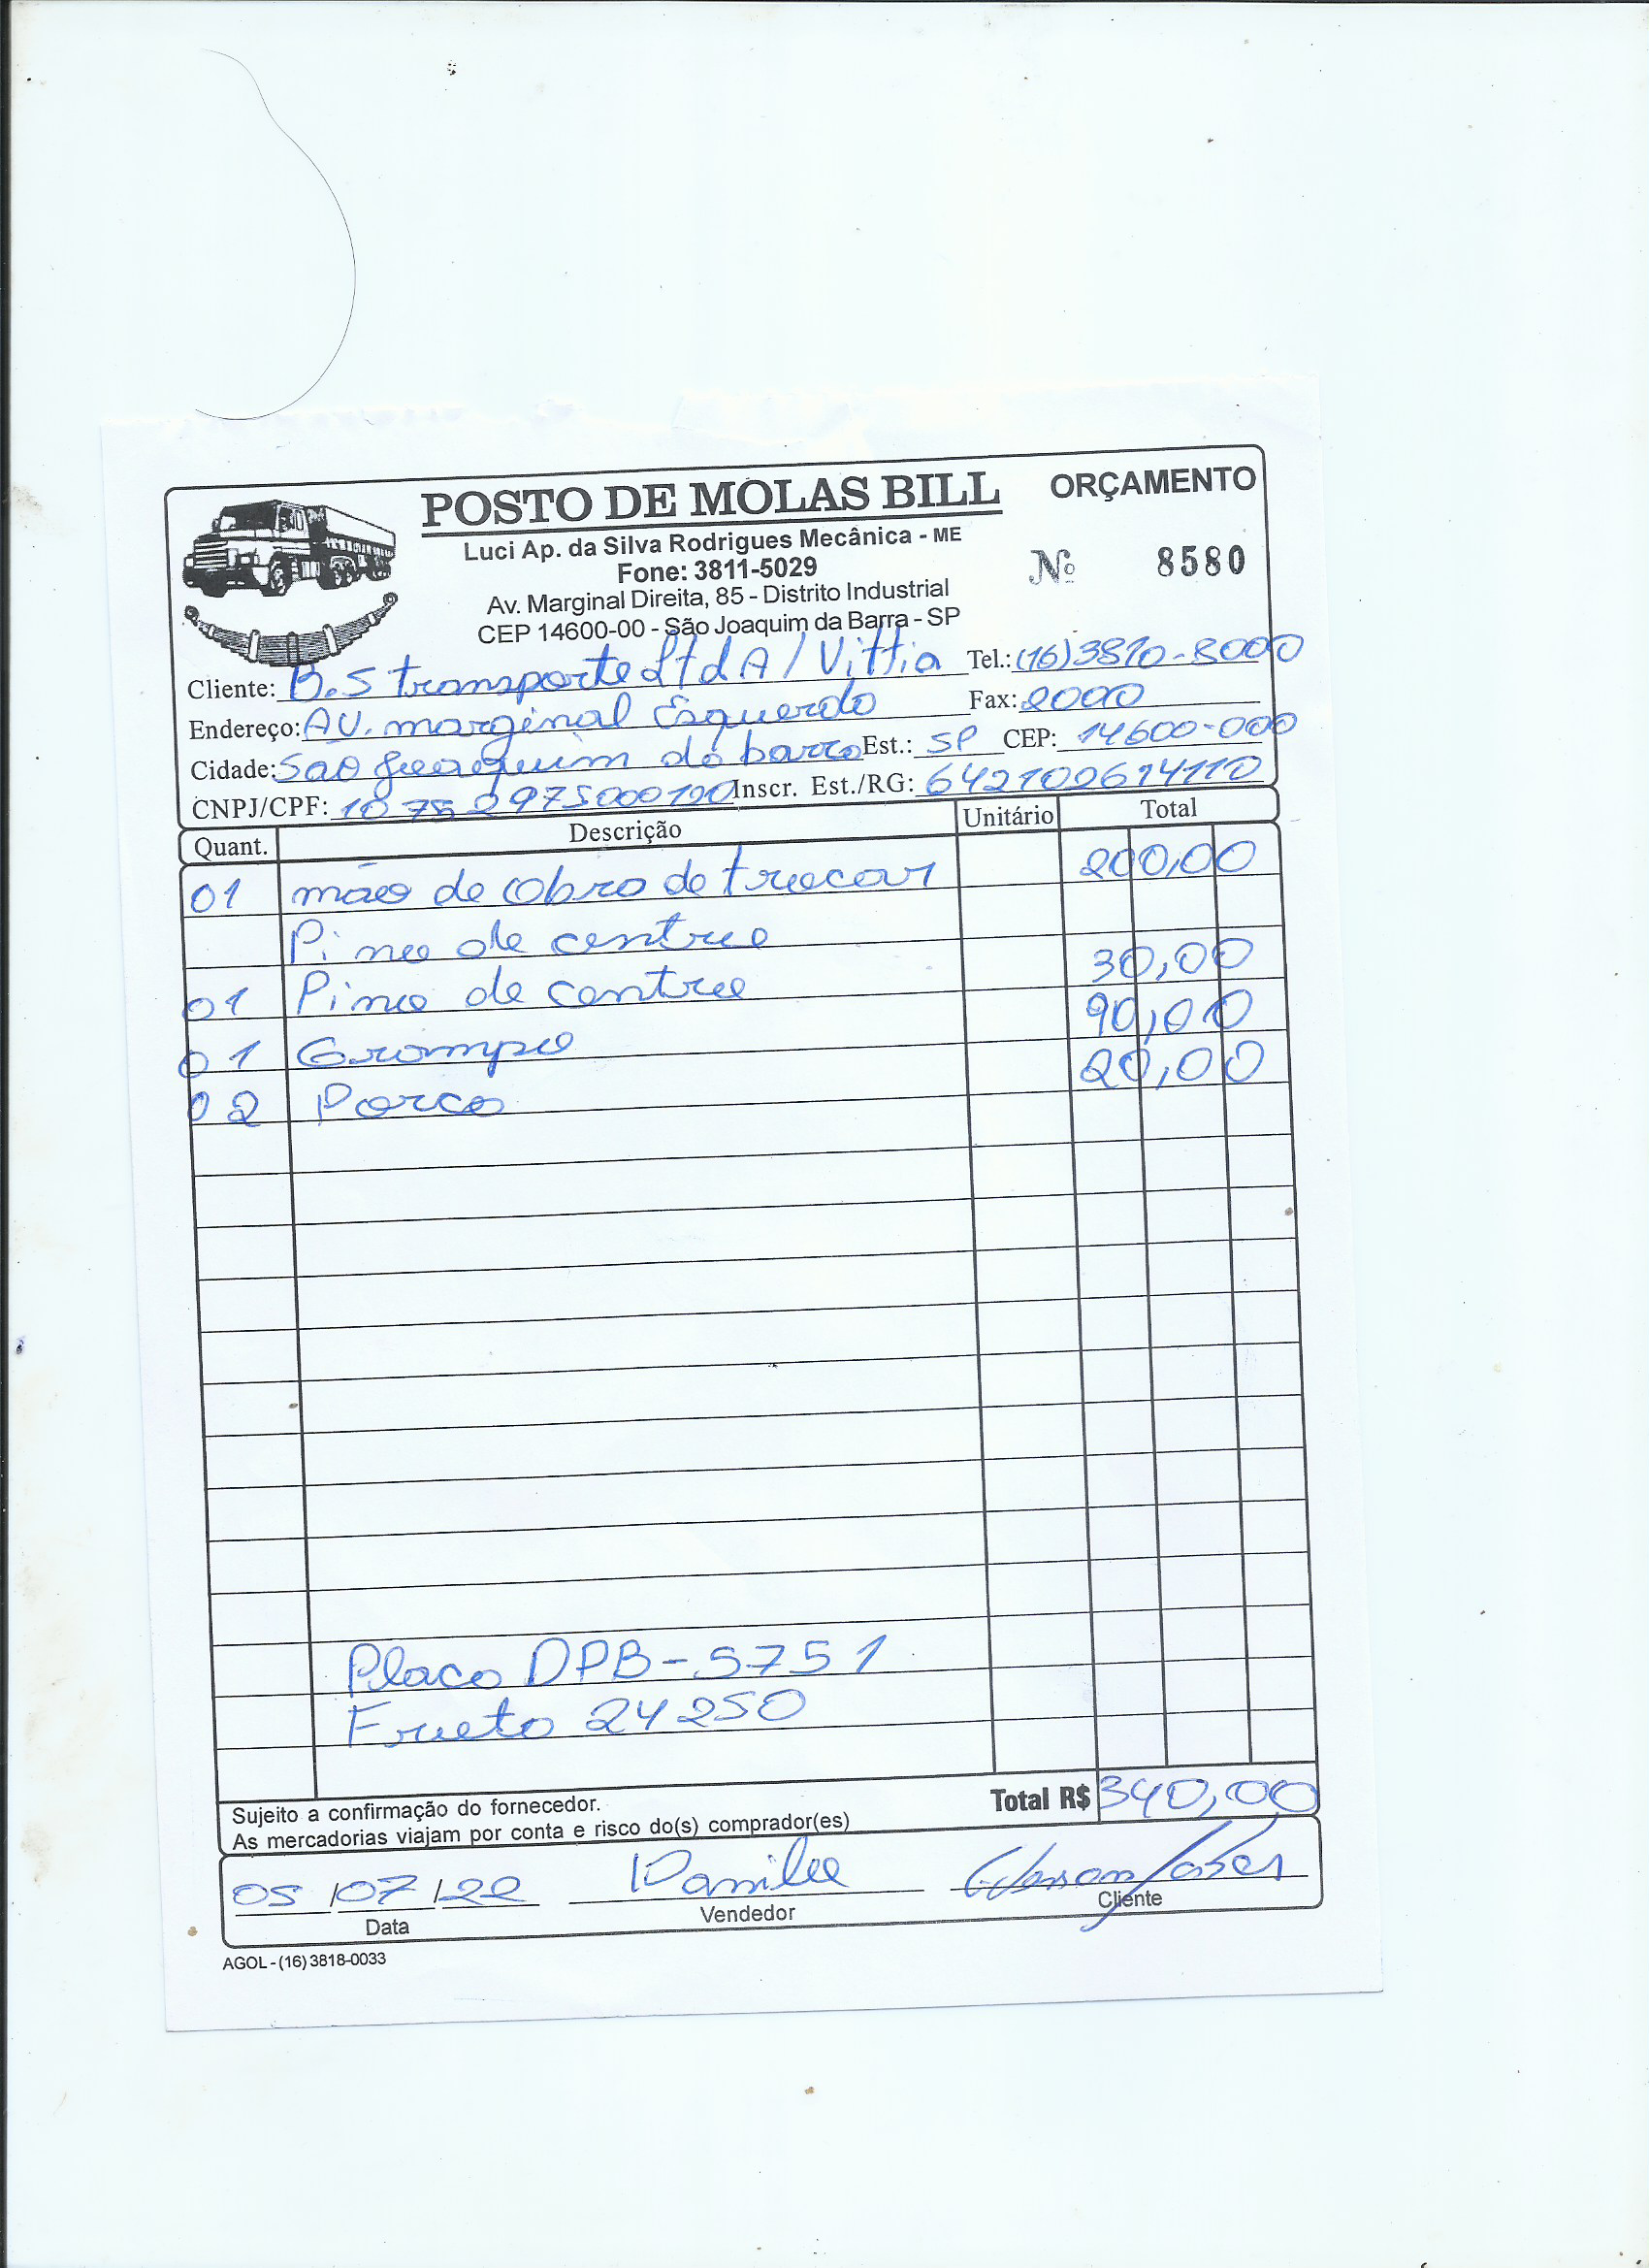 POSTO DE MOLAS BILL
ORÇAMENTO
Luci Ap. da Silva Rodrigues Mecânica - ME
Fone: 3811-5029
Nº 8580
Av. Marginal Direita, 85 - Distrito Industrial
CEP 14600-00 - São Joaquim da Barra - SP
Cliente: B.S transporte LtdA / Vittia Tel.: (16) 3810-8000
Endereço: AV. marginal Esquerda Fax: 2000
Cidade: São Joaquim da barra Est.: SP CEP: 14600-000
CNPJ/CPF: Inscr. Est./RG: 642102614110
Quant. Descrição Unitário Total
01 mão de obra de trocar 200,00
Pino de centro
01 Pino de centro 30,00
01 Grampo 90,00
02 Porca 20,00
Placa DPB-5751
Frota 24250
Sujeito a confirmação do fornecedor.
Total R$ 340,00
As mercadorias viajam por conta e risco do(s) comprador(es)
05 / 07 / 22 Danilo
Data Vendedor Cliente
AGOL - (16) 3818-0033